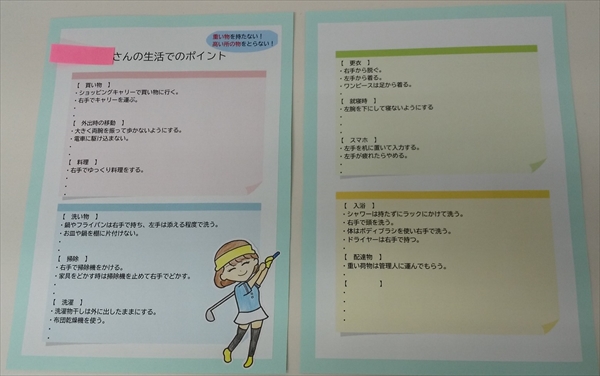 重い物を持たない！
高い所の物をとらない！
さんの生活でのポイント
【　買い物　】
・ショッピングキャリーで買い物に行く。
・右手でキャリーを運ぶ。
・
・
【　外出時の移動　】
・大きく両腕を振って歩かないようにする。
・電車に駆け込まない。
・
・
【　料理　】
・右手でゆっくり料理をする。
・
・
【　洗い物　】
・鍋やフライパンは右手で持ち、左手は添える程度で洗う。
・お皿や鍋を棚に片付けない。
・
・
【　掃除　】
・右手で掃除機をかける。
・家具をどかす時は掃除機を止めて右手でどかす。
・
・
【　洗濯　】
・洗濯物干しは外に出したままにする。
・布団乾燥機を使う。
・
・
【　更衣　】
・右手から脱ぐ。
・左手から着る。
・ワンピースは足から着る。
・
【　就寝時　】
・左腕を下にして寝ないようにする
・
・
【　スマホ　】
・左手を机に置いて入力する。
・左手が疲れたらやめる。
・
・
【　入浴　】
・シャワーは持たずにラックにかけて洗う。
・右手で頭を洗う。
・体はボディブラシを使い右手で洗う。
・ドライヤーは右手で持つ。
・
【　配達物　】
・重い荷物は管理人に運んでもらう。
・
【　　　　　】
・
・
・
・